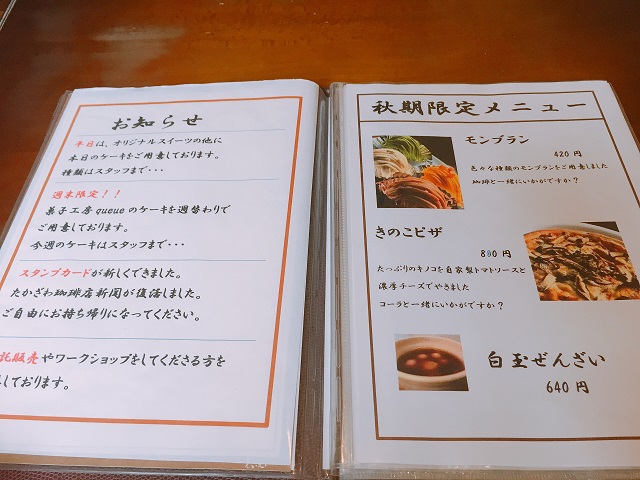 お知らせ
平日は、オリジナルスイーツの他に
本日のケーキをご用意しております。
種類はスタッフまで・・・
週末限定！！
菓子工房queueのケーキを週替わりで
ご用意しております。
今週のケーキはスタッフまで・・・
スタンプカードが新しくできました。
たかざわ珈琲店新聞が復活しました。
ご自由にお持ち帰りになってください。
託販売やワークショップをしてくださる方を
しております。
秋期限定メニュー
モンブラン
420 円
色々な種類のモンブランをご用意しました
珈琲と一緒にいかがですか？
きのこピザ
800 円
たっぷりのキノコを自家製トマトソースと
濃厚チーズでやきました
コーラと一緒にいかがですか？
白玉ぜんざい
640 円